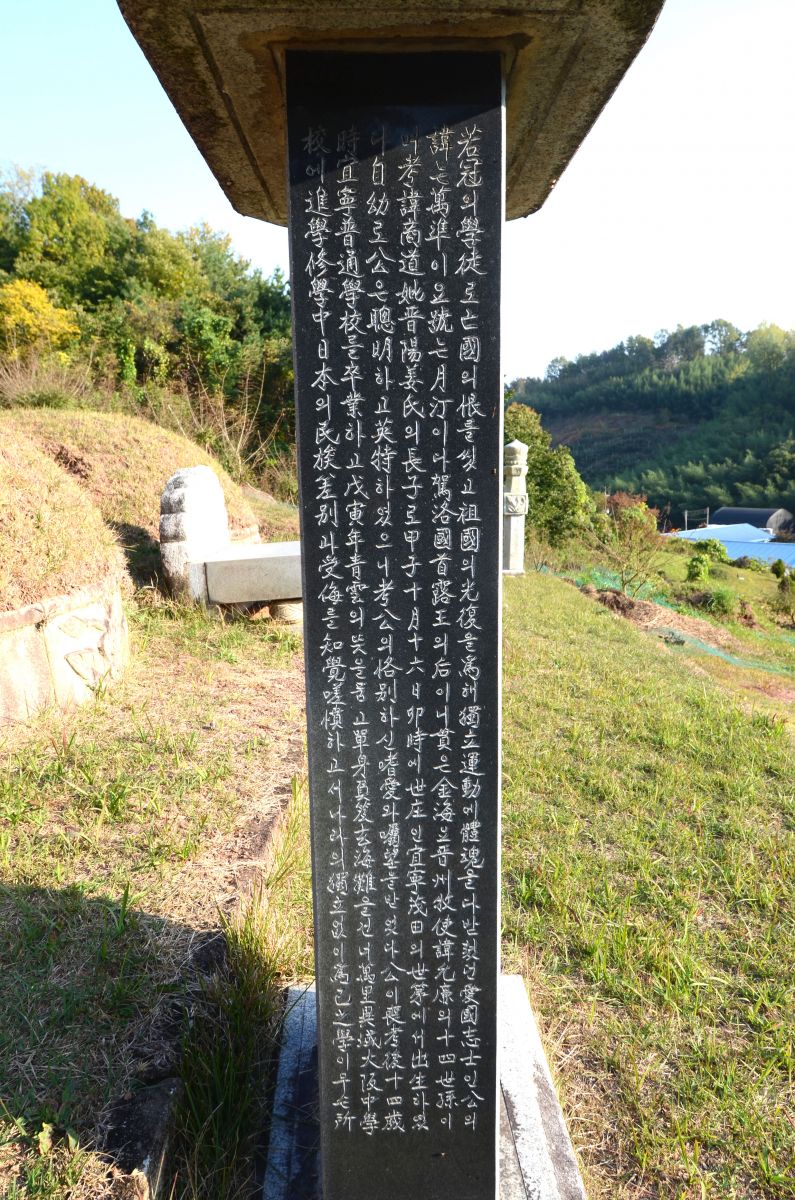 若冠의學徒로亡國의恨을씻고祖國의光復을爲해獨立運動에體魂을다받첬던愛國志士인公의
諱는萬準이요號는月汀이니駕洛國首露王의后이니貫은金海요晋州牧使諱允廉의十四世孫이
며考諱商道妣晋陽姜氏의長子로甲子十月十六日卯時에世庄인宜寧茂田의世第에서出生하였
다自幼로公은聰明하고英特하였으니考公의恪別하신嗜愛와囑望을받었다公이喪考後十四歲
時宜寧普通學校를卒業하고戊寅年青雲의뜻을품고單身負笈玄海灘을건너萬里異域大阪中學
校에進學修學中日本의民族差別과受侮를知覺嗟憤하고서나라의獨立없이爲己之學이무슨所